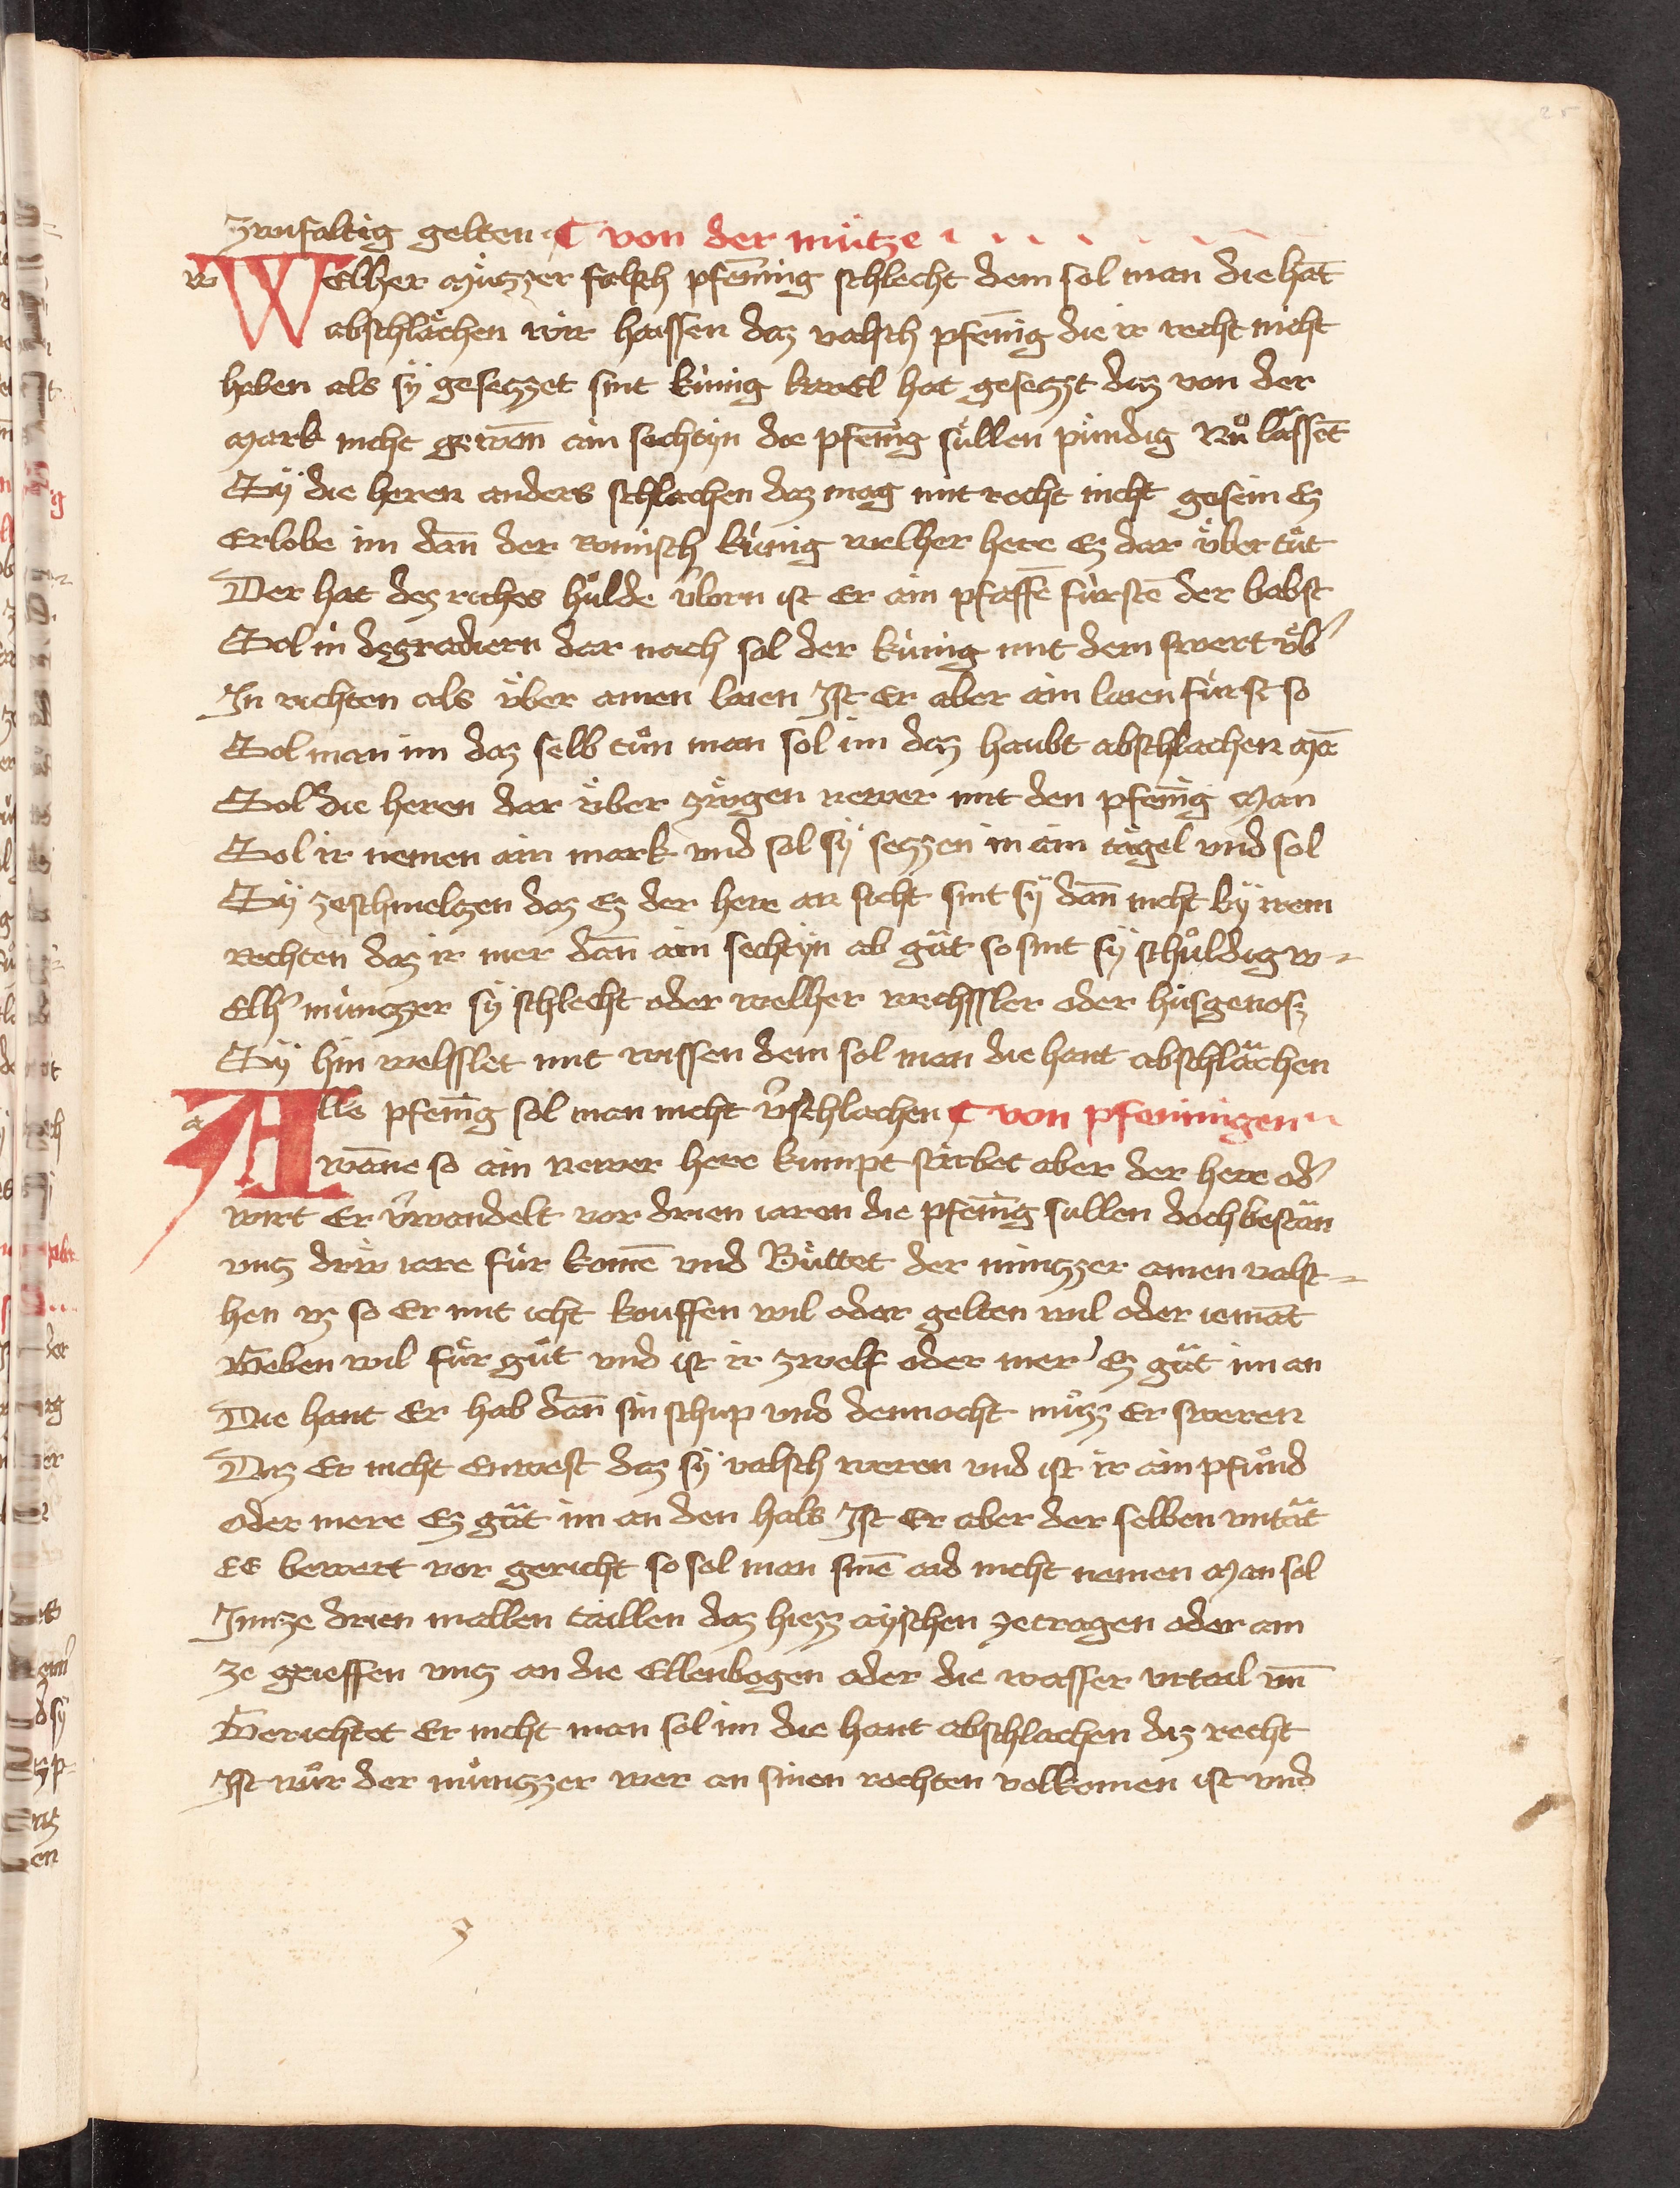 zwifaltig gelten ¶ von der mu̍tze
WElher Mu̍tzzer falsch pfen̄ing schlecht dem sol man die hāt
abschlächen wir haissen daz valsch pfēnig die ir recht nicht
haben als sÿ gesetzzet sint ku̍nig karel hat gesetzt daz von der
Mark nicht gewon̄ ain sechtÿn die pfēnig su̍llen pu̍ndig Nů lässēt
Sÿ die heren anders schlachen daz mag mit recht nicht gesein Ez
Erlobe im dan̄ der romisch ku̍nig welher here Ez dar u̍ber tu̍t
Der hat dez riches hulde v̄lorn ist Er ain pfaffē fu̍rstē der babst
Sol in degradiern dar nach sol der ku̍nig mit dem swert u̍b̛
In richten als u̍ber ainen laien Ist Er aber ain laien fu̍rst so
Sol man im daz selb tůn man sol im daz haubt abschlachen Mā
Sol die heren dar u̍ber zu̍gen newer mit den pfēnig Man
Sol ir nemen ain mark vnd sol sÿ setzzen in ain tägel vnd sol
Sÿ zeschmeltzen daz Ez der here an sicht sint sÿ dan̄ nicht bÿ irem
rechten daz ir mer dan̄ ain sechtÿn ab gät so sint sÿ schu̍ldig w-
Elh̛ mu̍ntzzer sÿ schlecht oder welher wechssler oder husgenosz
Sÿ hin welsslet mit wissen dem sol man die hant abschlächen
Alle pfēnig sol man nicht v̄schlachen ¶ von pfenningen
wāne so ain newer here kumpt stirbet aber der here od̛
wirt Er v̄wandelt vor drien iaren die pfēnig sullen doch bestän
vntz driw iare fu̍r komē vnd Bu̍ttet der mu̍ntzzer ainen valsc-
hen vz so Er mit icht kouffen wil oder gelten wil oder iemāt
Geben wil fu̍r gůt vnd ist ir zwelf oder mer Ez gät im an
Die hant Er hab dan̄ sin schup vnd dennocht mu̍zz Er sweren
Daz Er nicht Enwest daz sÿ valsch weren vnd ist ir ain pfůnd
oder mere Ez gät im an den hals Ist Er aber der selben vntät
Ee bewert vor gericht so sol man sinē aid nicht nemen Man sol
Im ze drien mallen taillen daz hiezz aÿschen ze tragen oder ain
ze grieffen vntz an die Ellenbogen oder die wasser vrtail vn̄
Gerichtet Er nicht man sol im die hant abschlachen diz recht
Ist u̍ber der mu̍ntzzer wer an sinen rechten volkomen ist vnd